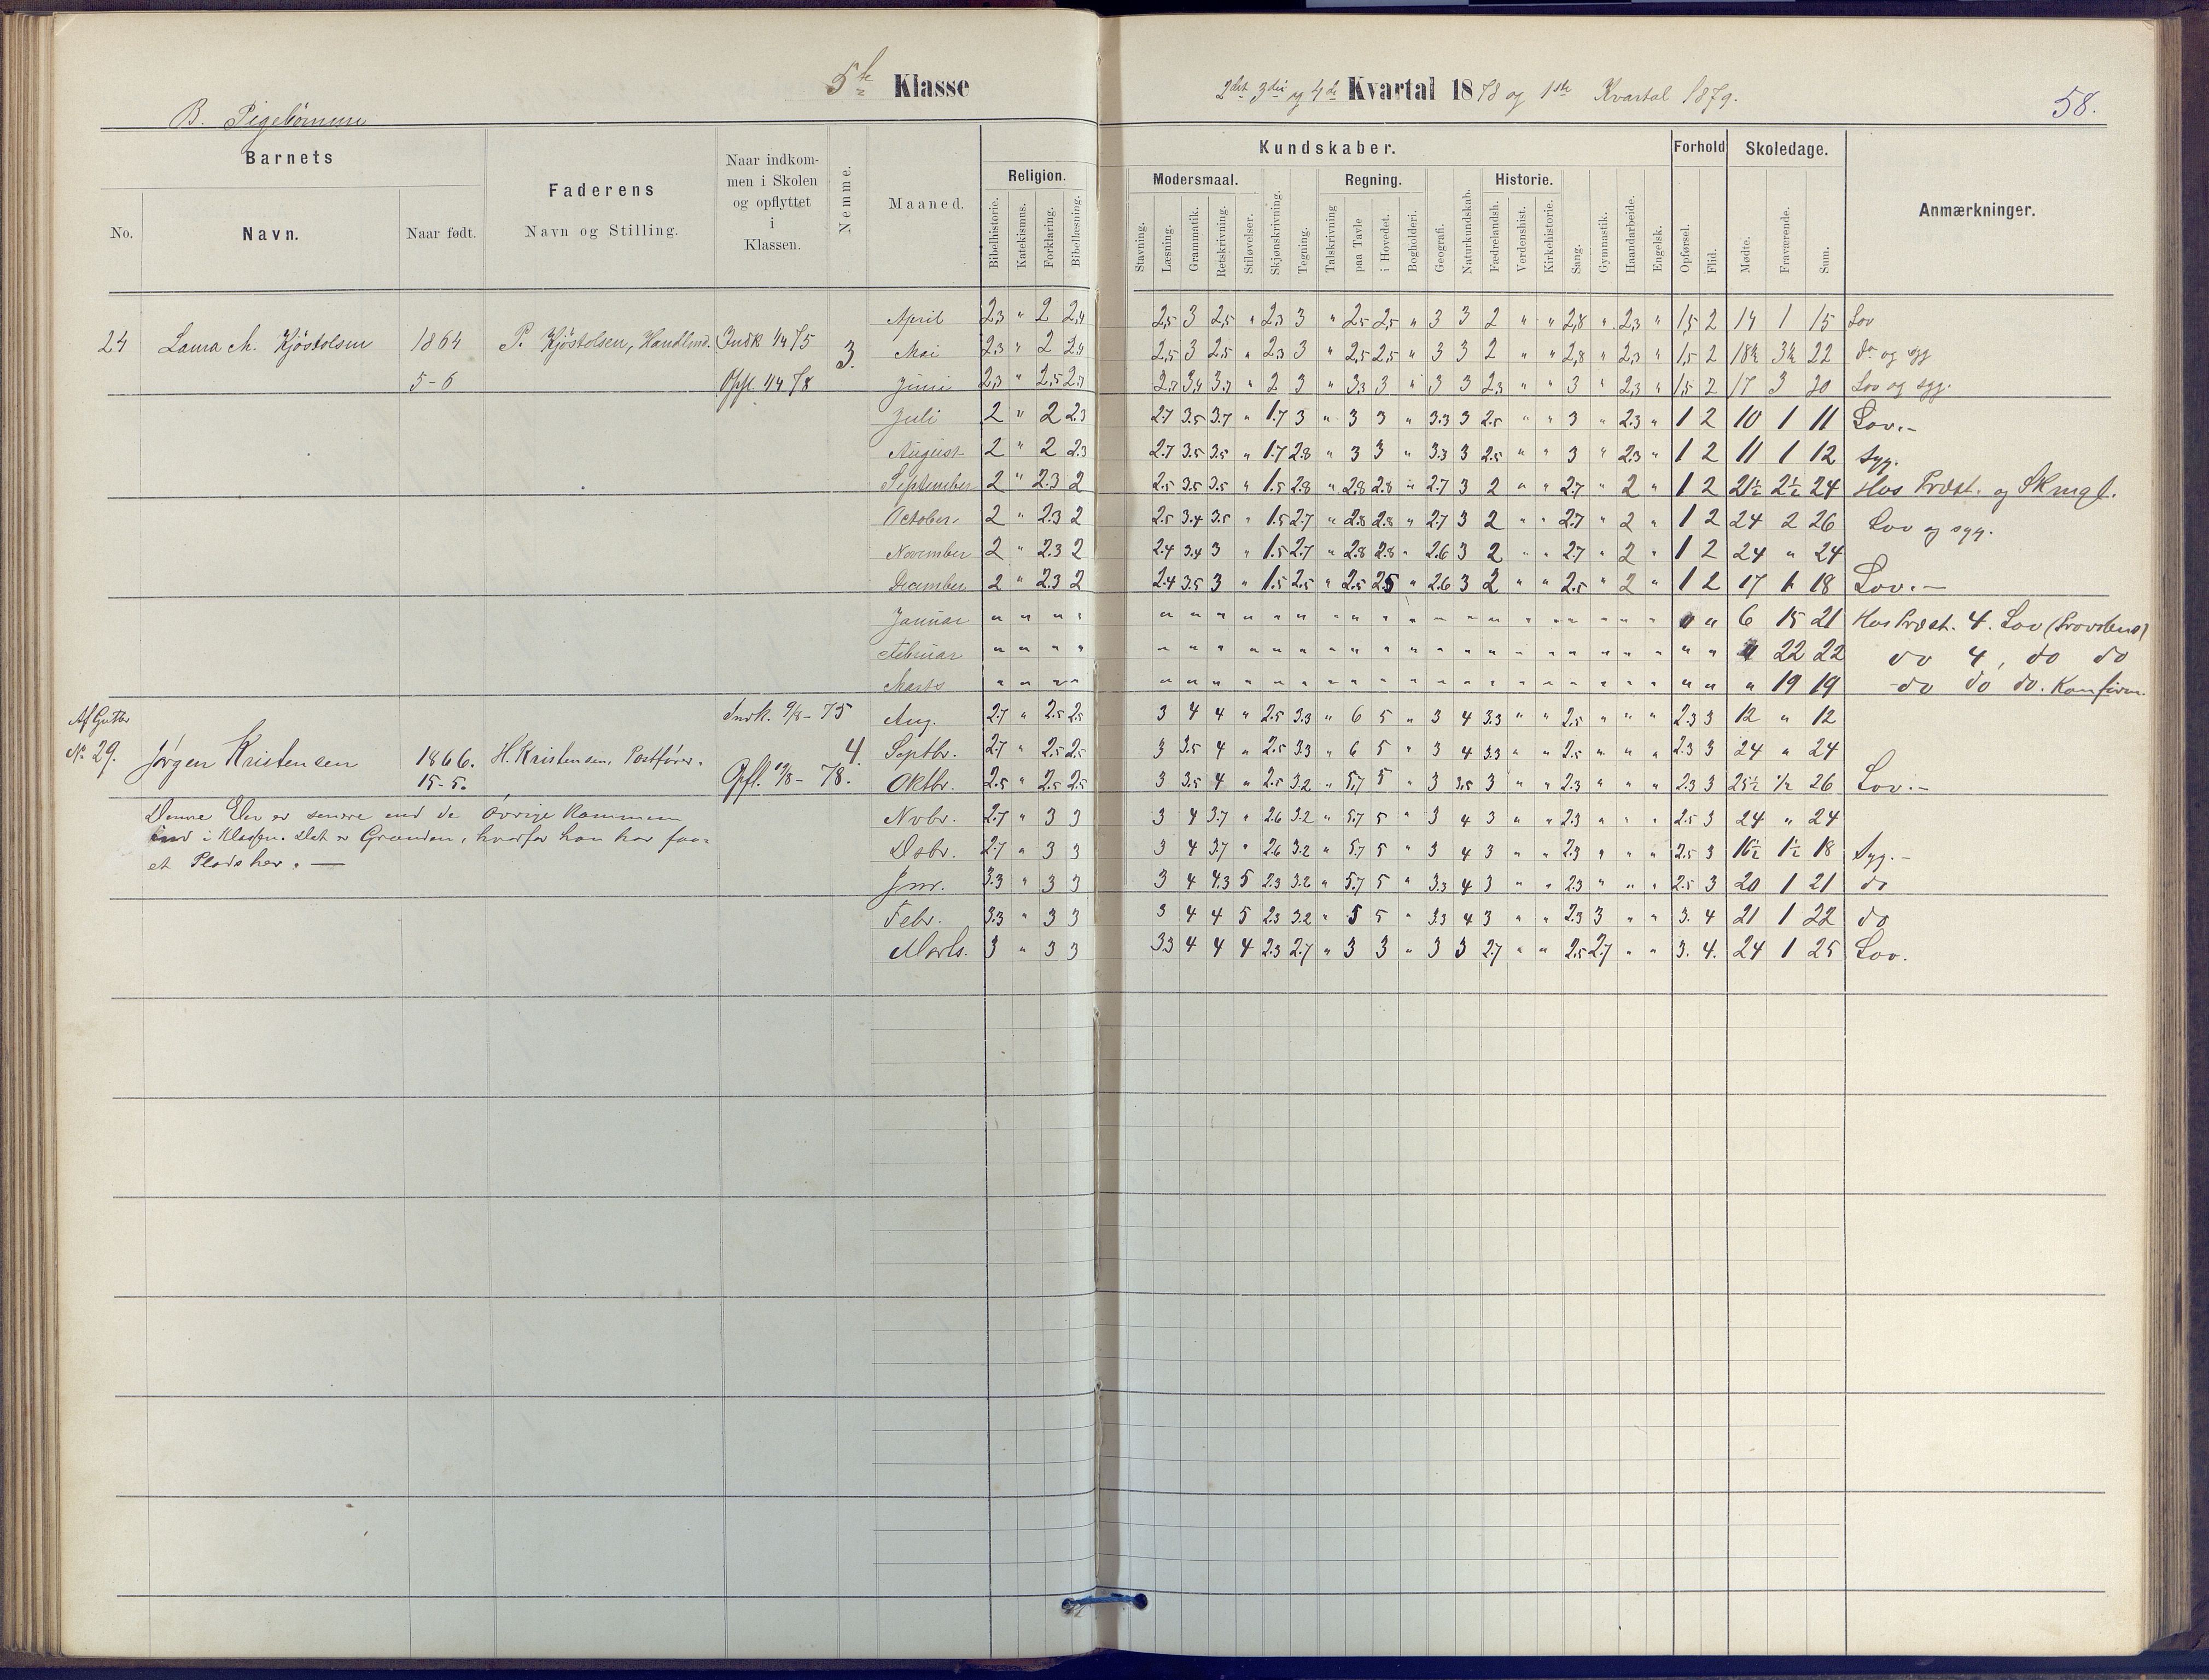 5te Klasse
2det 3die og 4de Kvartal 1878 og 1ste Kvartal 1879.
58.
B. Pigebørnene
Barnets
No.
Navn.
Naar født.
Faderens
Navn og Stilling.
Naar indkom-
men i Skolen
og opflyttet
i
Klassen.
Nemme.
Maaned.
Religion.
Bibelhistorie.
Katekismus.
Forklaring.
Bibellæsning.
Kundskaber.
Modersmaal.
Stavning.
Læsning.
Grammatik.
Retskrivning.
Stiløvelser.
Skjønskrivning.
Tegning.
Regning.
Talskrivning
paa Tavle
i Hovedet.
Bogholderi.
Geografi.
Naturkundskab.
Historie.
Fædrelandsh.
Verdenshist.
Kirkehistorie.
Sang.
Gymnastik.
Haandarbeide.
Engelsk.
Forhold
Opførsel.
Flid.
Skoledage.
Mødte.
Fraværende.
Sum.
Anmærkninger.
24 Laura M. Kjöstolsen 1864 P. Kjöstolsen, Handlend. Indk 1/4 75 3.
5-6 Opfl. 1/4 78
April 2,3 " 2 2,4 2,5 3 2,5 " 2,3 3 " 2,5 2,5 " 3 3 2 " " 2,8 " 2,3 " 1,5 2 14 1 15 Lov
Mai 2,3 " 2 2,4 2,5 3 2,5 " 2,3 3 " 2,5 2,5 " 3 3 2 " " 2,8 " 2,3 " 1,5 2 18½ 3½ 22 do og syg
Juni 2,3 " 2,5 2,3 2,7 3,4 3,7 " 2 3 " 3,3 3 " 3 3 2,3 " " 3 " 2,3 " 1,5 2 17 3 20 Lov og syg.
Juli 2 " 2 2.3 2.7 3.5 3.7 " 1.7 3 " 3 3 " 3.3 3 2.5 " " 3 " 2.3 " 1 2 10 1 11 Lov.-
August 2 " 2 2.3 2.7 3.5 3.5 " 1.7 2.8 " 3 3 " 3.3 3 2.5 " " 3 " 2.3 " 1 2 11 1 12 Syg.
September 2 " 2.3 2 2.5 3.5 3.5 " 1.5 2.8 " 2.8 2.8 " 2.7 3 2 " " 2.7 " 2 " 1 2 21½ 2½ 24 Hos Præst. og Skmgl.
October 2 " 2.3 2 2.5 3.4 3.5 " 1.5 2.7 " 2.8 2.8 " 2.7 3 2 " " 2.7 " 2 " 1 2 24 2 26 Lov og syg.
November 2 " 2.3 2 2.4 3.4 3 " 1.5 2.7 " 2.8 2.8 " 2.6 3 2 " " 2.7 " 2 " 1 2 24 " 24
December 2 " 2.3 2 2.4 3.5 3 " 1.5 2.5 " 2.5 2.5 " 2.6 3 2 " " 2.5 " 2 " 1 2 17 1 18 Lov.-
Januar " " " " " " " " " " " " " " " " " " " " " " " " " 6 15 21 Hos Præst. 4. Lov (Provstens)
Februar " " " " " " " " " " " " " " " " " " " " " " " " " " 22 22 do 4, do do
Marts " " " " " " " " " " " " " " " " " " " " " " " " " " 19 19 do do do. Konfirm.
Af Gutter
No 29. Jörgen Kristensen 1866. H. Kristensen, Postfører. Indk. 9/8 - 75 4.
15-5. Opfl. 19/8 - 78.
Aug. 2.7 " 2.5 2.5 3 4 4 " 2.5 3.3 " 6 5 " 3 4 3.3 " " 2.5 " " " 2.3 3 12 " 12
Septbr. 2.7 " 2.5 2.5 3 3.5 4 " 2.5 3.3 " 6 5 " 3 4 3.3 " " 2.5 " " " 2.3 3 24 " 24
Oktbr. 2.5 " 2.5 2.5 3 3.5 4 " 2.5 3.2 " 5.7 5 " 3 3.5 3 " " 2.3 " " " 2.3 3 25½ ½ 26 Lov.-
Denne Elev er senere end de övrige kommen
ind i Klassen. Det er Grunden, hvorfor han har faa-
et Plads her. —
Novbr. 2.7 " 3 3 3 4 3.7 " 2.6 3.2 " 5.7 5 " 3 4 3 " " 2.3 " " " 2.5 3 24 " 24
Dsbr. 2.7 " 3 3 3 4 3.7 " 2.6 3.2 " 5.7 5 " 3 4 3 " " 2.3 " " " 2.5 3 16½ 1½ 18 Syg.-
Jnr. 3.3 " 3 3 3 4 4.3 5 2.3 3.2 " 5.7 5 " 3.3 4 3 " " 2.3 " " " 2.5 3 20 1 21 do
Febr. 3.3 " 3 3 3 4 4 5 2.3 3.2 " 5 5 " 3.3 4 3 " " 2.3 3 " " 3. 4 21 1 22 do
Marts. 3 " 3 3 3.3 4 4 4 2.3 2.7 " 3 3 " 3 3 2.7 " " 2.5 2.7 " " 3. 4. 24 1 25 Lov.